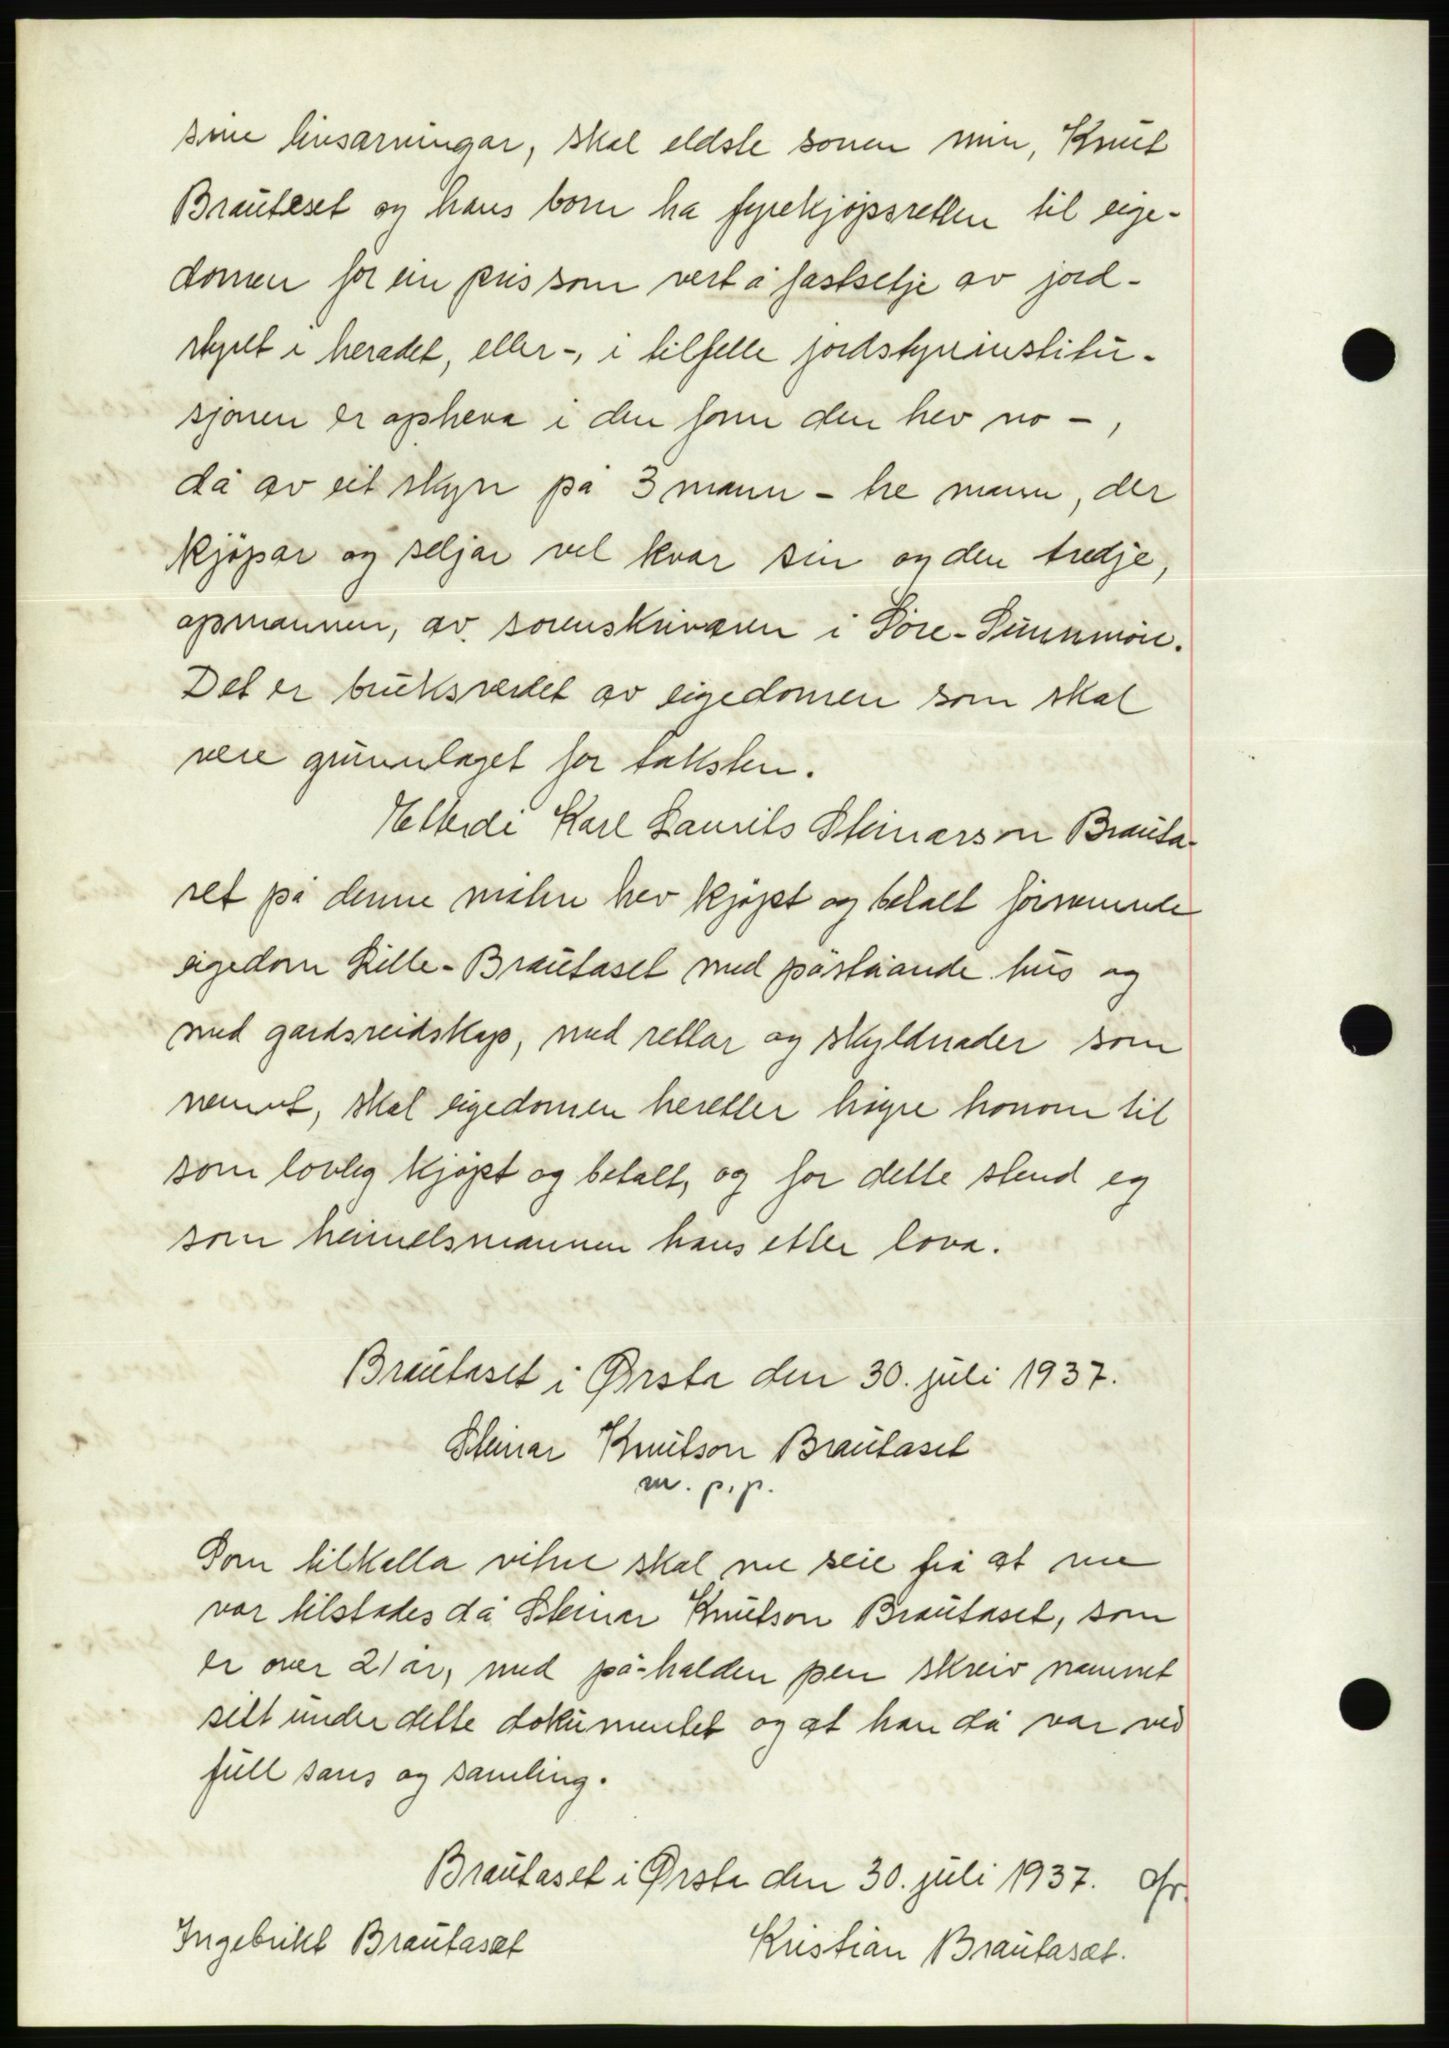 sine livsarvingar, skal eldste sonen min, Knut
Brauteset og hans born ha fyrekjøpsretten til eige-
domen for ein pris som vert å fastsetje av jord-
styret i heradet, eller -, i tilfelle jordstyreinstitu-
sjonen er opheva i den form den hev no -,
då av eit skyn på 3 mann - tre mann, der
kjøpar og seljar vel kvar sin og den tredje,
opmannen, av sorenskrivaren i Søre-Sunnmøre.
Det er bruksverdet av eigedomen som skal
vere grunnlaget for taksten.
Etterdi Karl Laurits Steinarson Brauta-
set på denne måten hev kjøpt og betalt fyrrnemnde
eigedom Litle-Brautaset med påståande hus og
med gardsreidskap, med rettar og skyldnader som
nemnt, skal eigedomen heretter høyre honom til
som lovleg kjøpt og betalt, og for dette stend eg
som heimelsmannen hans etter lova.
Brautaset i Ørsta den 30. juli 1937.
Steinar Knutson Brautaset
m. p. p.
Som tilkalla vitne skal me seie frå at me
var tilstades då Steinar Knutson Brautaset, som
er over 21 år, med på-halden pen skreiv namnet
sitt under dette dokumentet og at han då var ved
full sans og samling.
Brautaset i Ørsta den 30. juli 1937.
Ingebrikt Brautaset Kristian Brautaset.